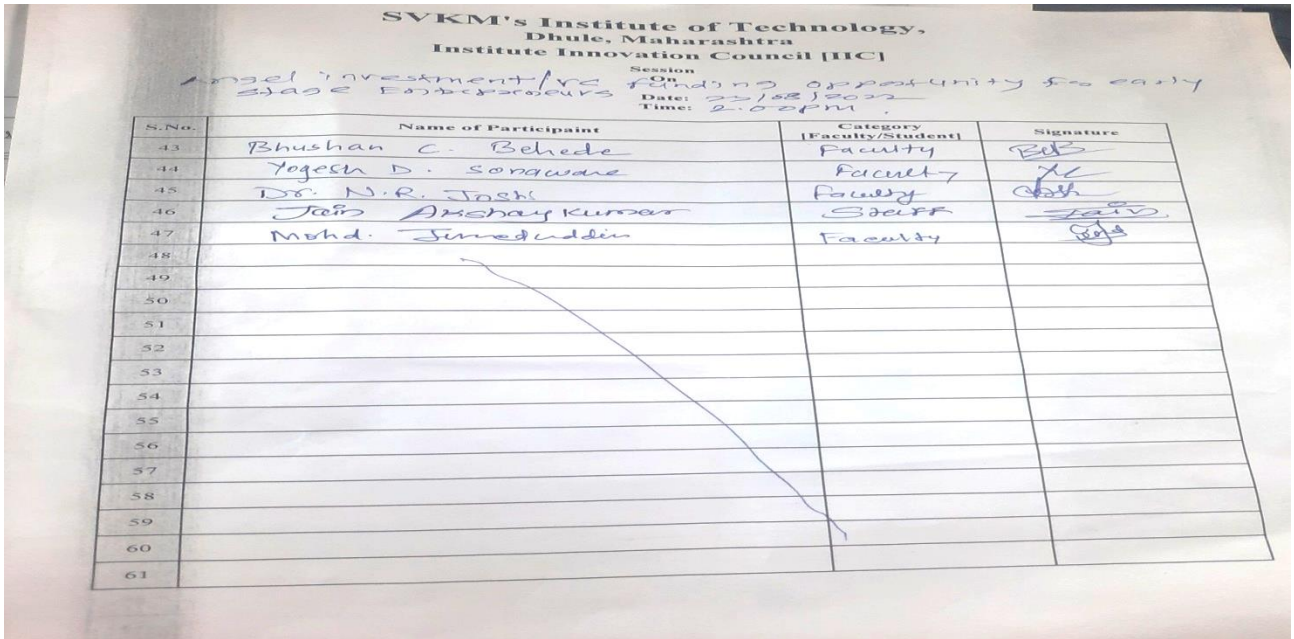 SVKM's Institute of Technology,
Dhule, Maharashtra
Institute Innovation Council [IIC]
Session
On
Angel investment/vc funding opportunity for early
stage Entrepreneurs
Date: /08/2022
Time: 2.00pm
S.No. Name of Participaint Category [Faculty/Student] Signature
43 Bhushan C. Behede Faculty
44 Yogesh D. Sonawane Faculty
45 Dr. N.R. Joshi Faculty
46 Jain Akshay Kumar Staff Jain
47 Mohd. Faculty
48
49
50
51
52
53
54
55
56
57
58
59
60
61